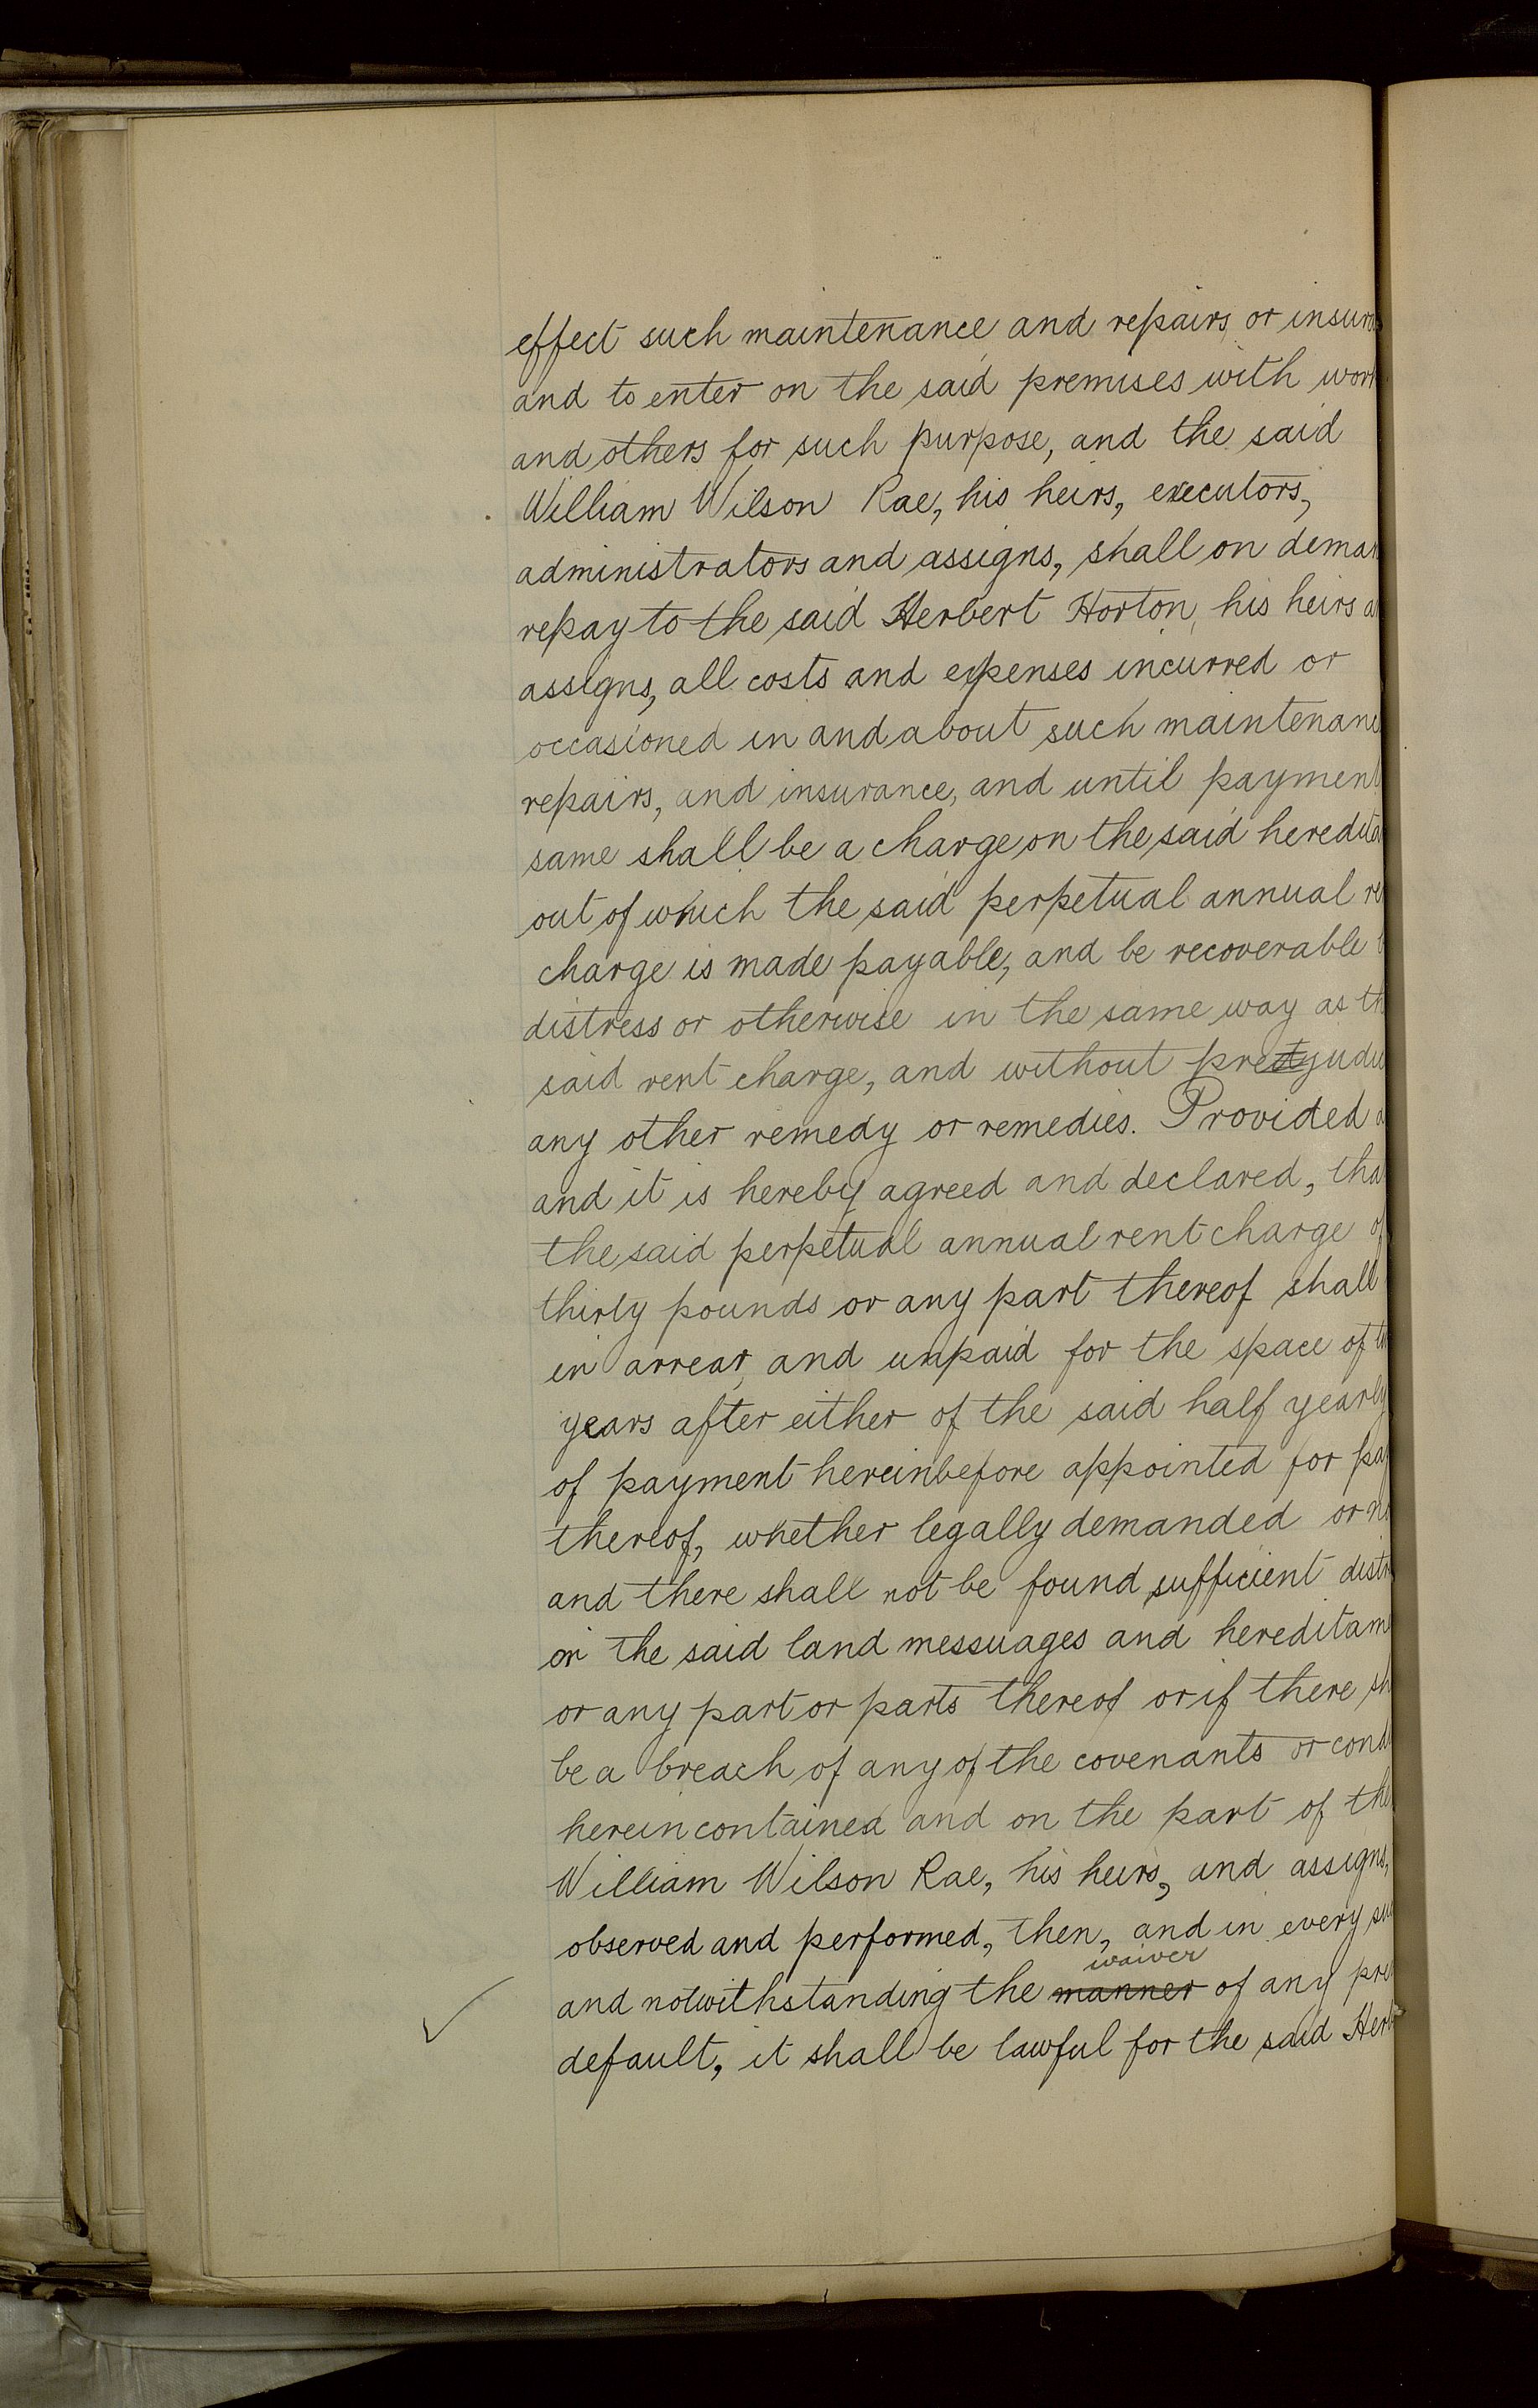 effect such maintenance and repairs, or insur
and to enter on the said premises with work
and others for such purpose, and the said
William Wilson Rae, his heirs, executors,
administrators and assigns, shall on deman
repay to the said Herbert Horton, his heirs a
assigns, all costs and expenses incurred or
occasioned in and about such maintenanc
repairs, and insurance, and until payment
same shall be a charge on the said heredita
out of which the said perpetual annual re
charge is made payable, and be recoverable b
distress or otherwise in the same way as th
said rent charge, and without prejudic
any other remedy or remedies. Provided a
and it is hereby agreed and declared, tha
the said perpetual annual rent charge of
thirty pounds or any part thereof shall
in arrear, and unpaid for the space of tw
years after either of the said half yearly
of payment hereinbefore appointed for pay
thereof, whether legally demanded or no
and there shall not be found sufficient distr
on the said land messuages and hereditam
or any part or parts thereof or if there sh
be a breach of any of the covenants or cond
herein contained and on the part of the
William Wilson Rae, his heirs, and assigns,
observed and performed, then, and in every suc
waiver
and notwithstanding the manner of any pre
default, it shall be lawful for the said Herb